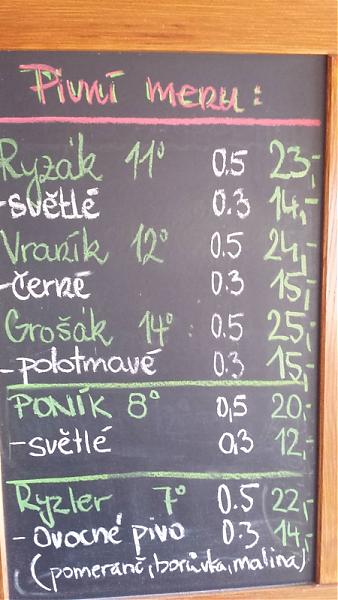 Pivní menu:
Ryzák 11° 0.5 23,-
-světlé 0.3 14,-
Vraník 12° 0.5 24,-
-černé 0.3 15,-
Grošák 14° 0.5 25,-
-polotmavé 0.3 15,-
PONÍK 8° 0,5 20,-
-světlé 0,3 12,-
Ryzler 7° 0.5 22,-
-ovocné pivo 0.3 14,-
(pomeranč,borůvka,malina)